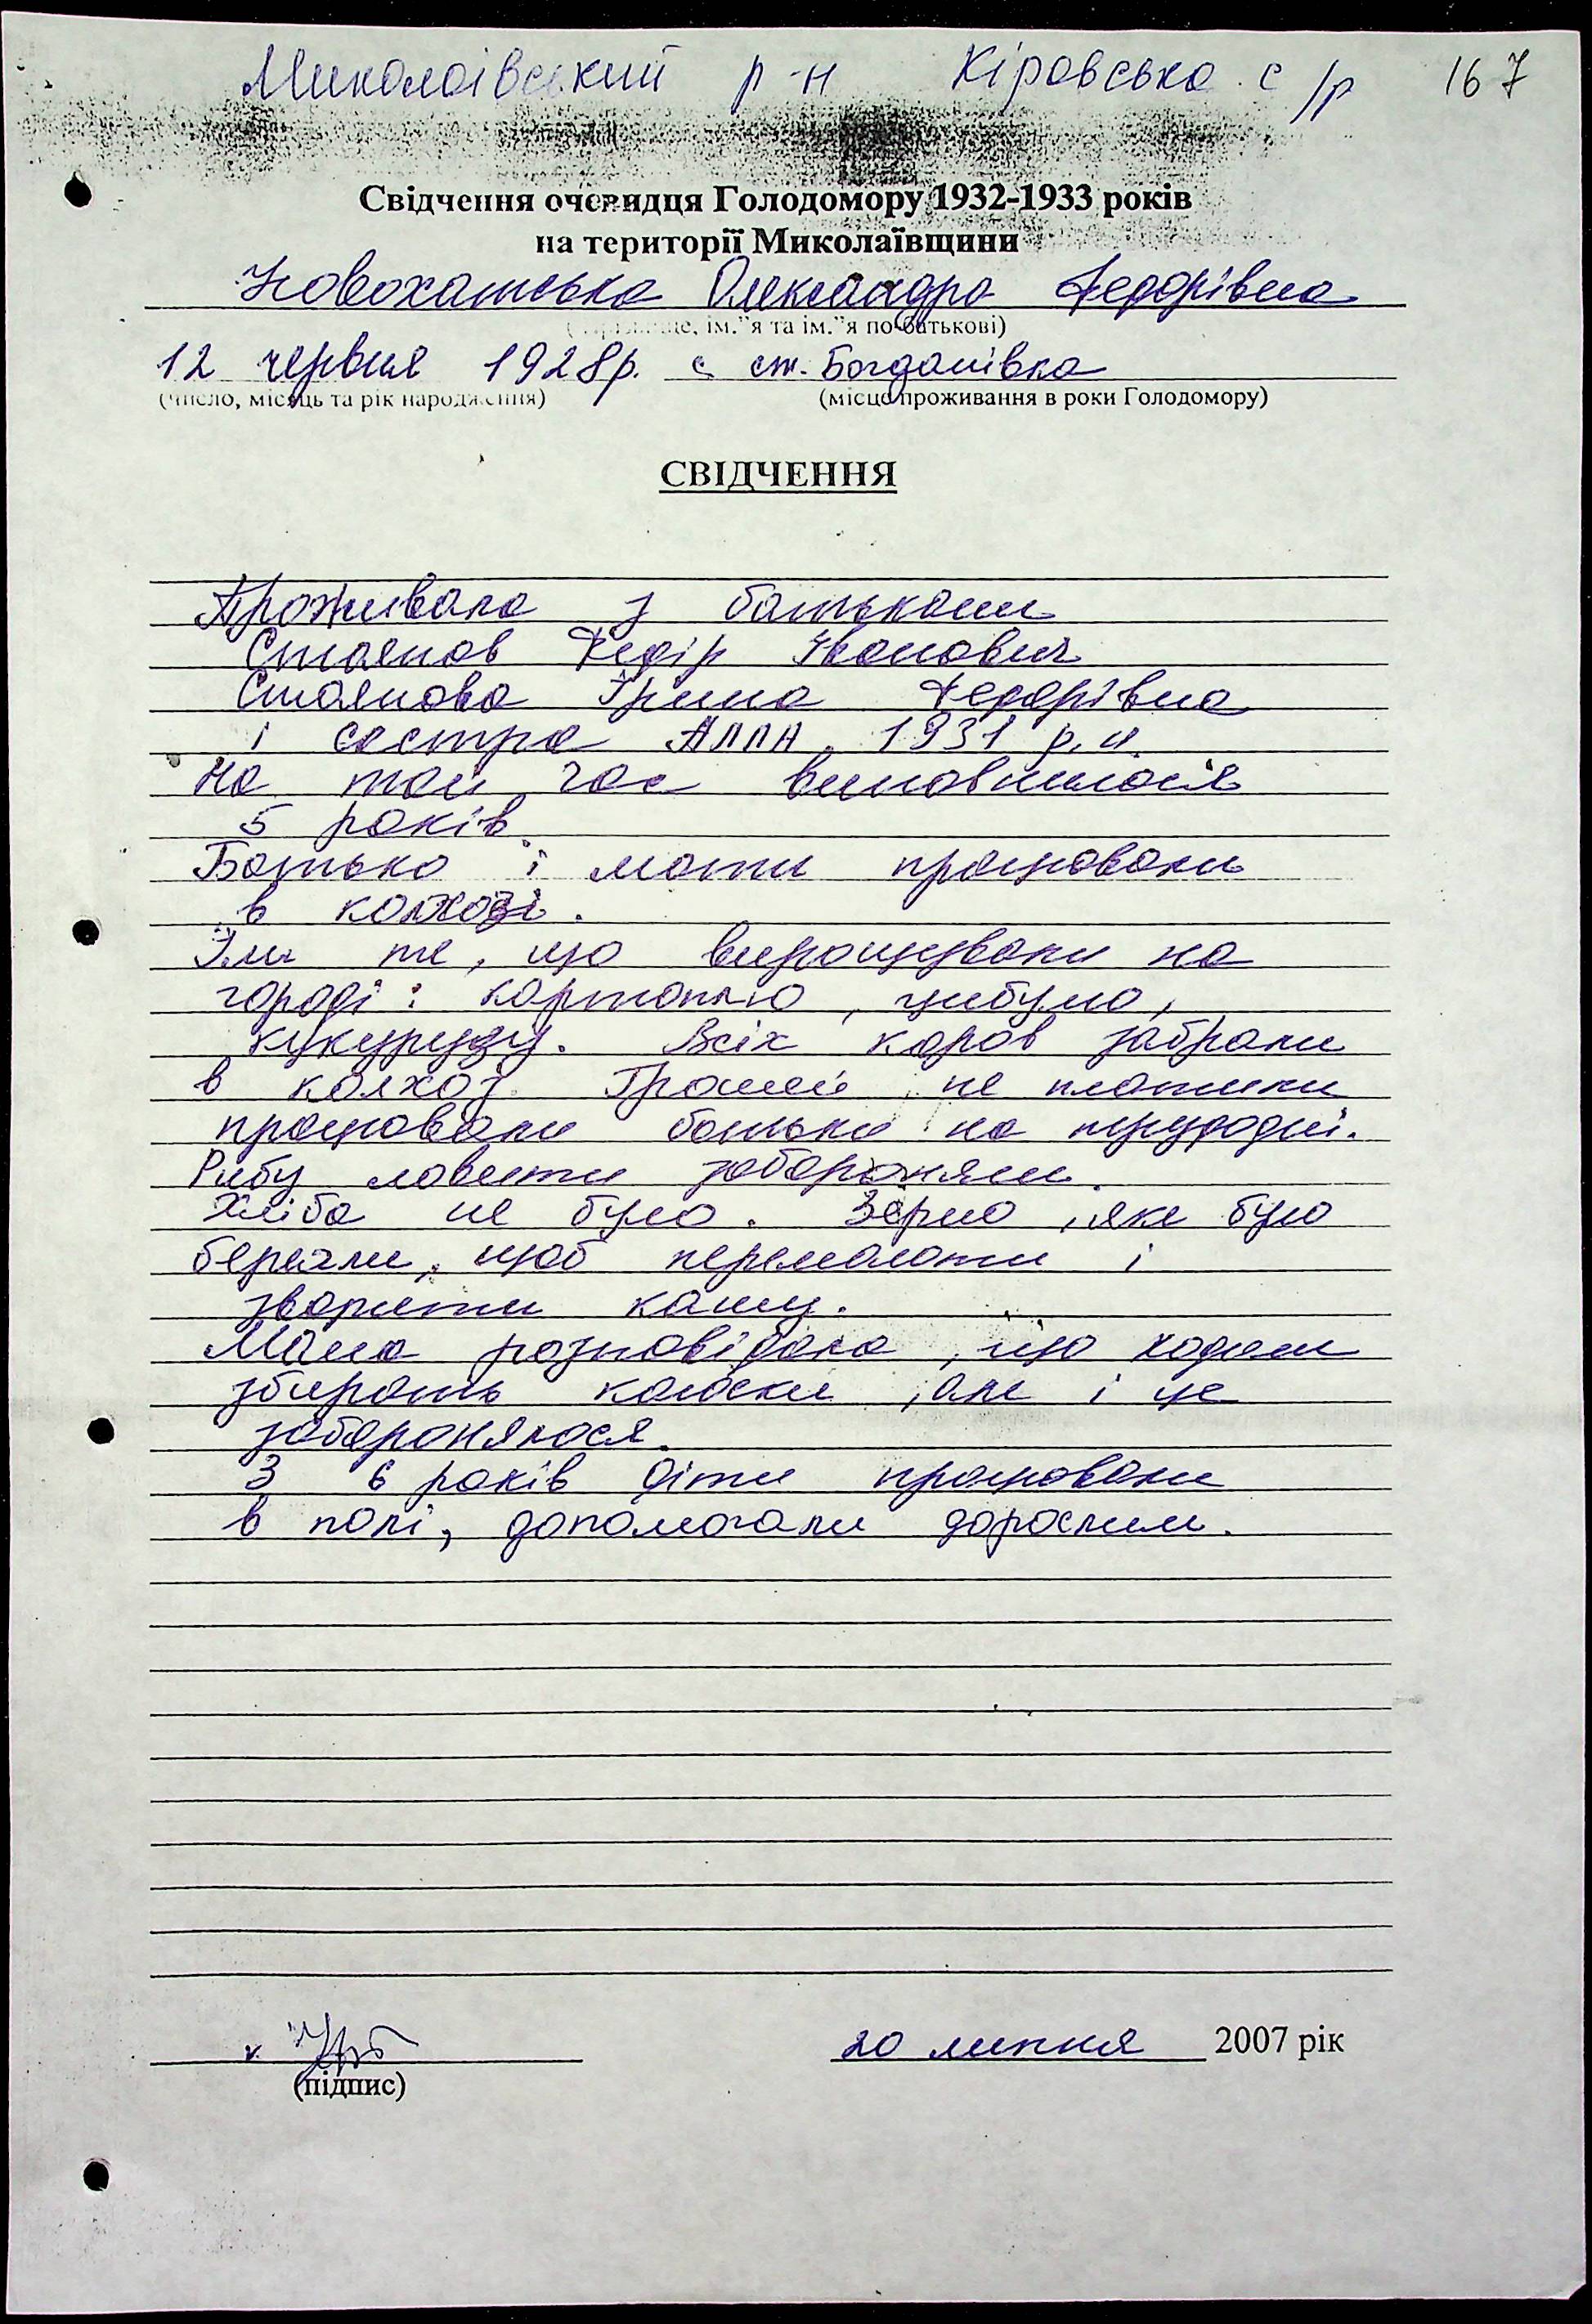 Миколаївський р-н Кіровська с/р 167
Свідчення очевидця Голодомору 1932-1933 років
на території Миколаївщини
Новохатська Олександра Федорівна
(прізвище, ім."я та ім."я по-батькові)
12 червня 1928р. с ст. Богданівка
(число, місяць та рік народження) (місце проживання в роки Голодомору)
СВІДЧЕННЯ
Проживала з батьками
Стоянов Федір Іванович
Стоянова Ірина Федорівна
і сестра Алла, 1931 р.н.
На той час виповнилося
5 років.
Батько і мати працювали
в колхозі.
Їли те, що вирощували на
городі: картоплю, цибулю,
кукурузу. Всіх коров забрали
в колхоз. Грошей не платили
працювали батьки на трудодні.
Рибу ловити забороняли.
Хліба не було. Зерно, яке було
берегли, щоб перемолоти і
зварити кашу.
Мама розповідала, що ходили
збирать колоски, але і це
заборонялося.
З 6 років діти працювали
в полі, допомагали дорослим.
20 липня 2007 рік
(підпис)